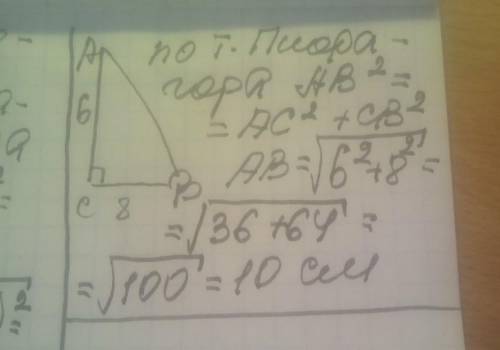 A
6
C 8 B
по т. Пифа-
гора AB² =
= AC² + CB²
AB = √6² + 8² =
= √36 + 64 =
= √100 = 10 см